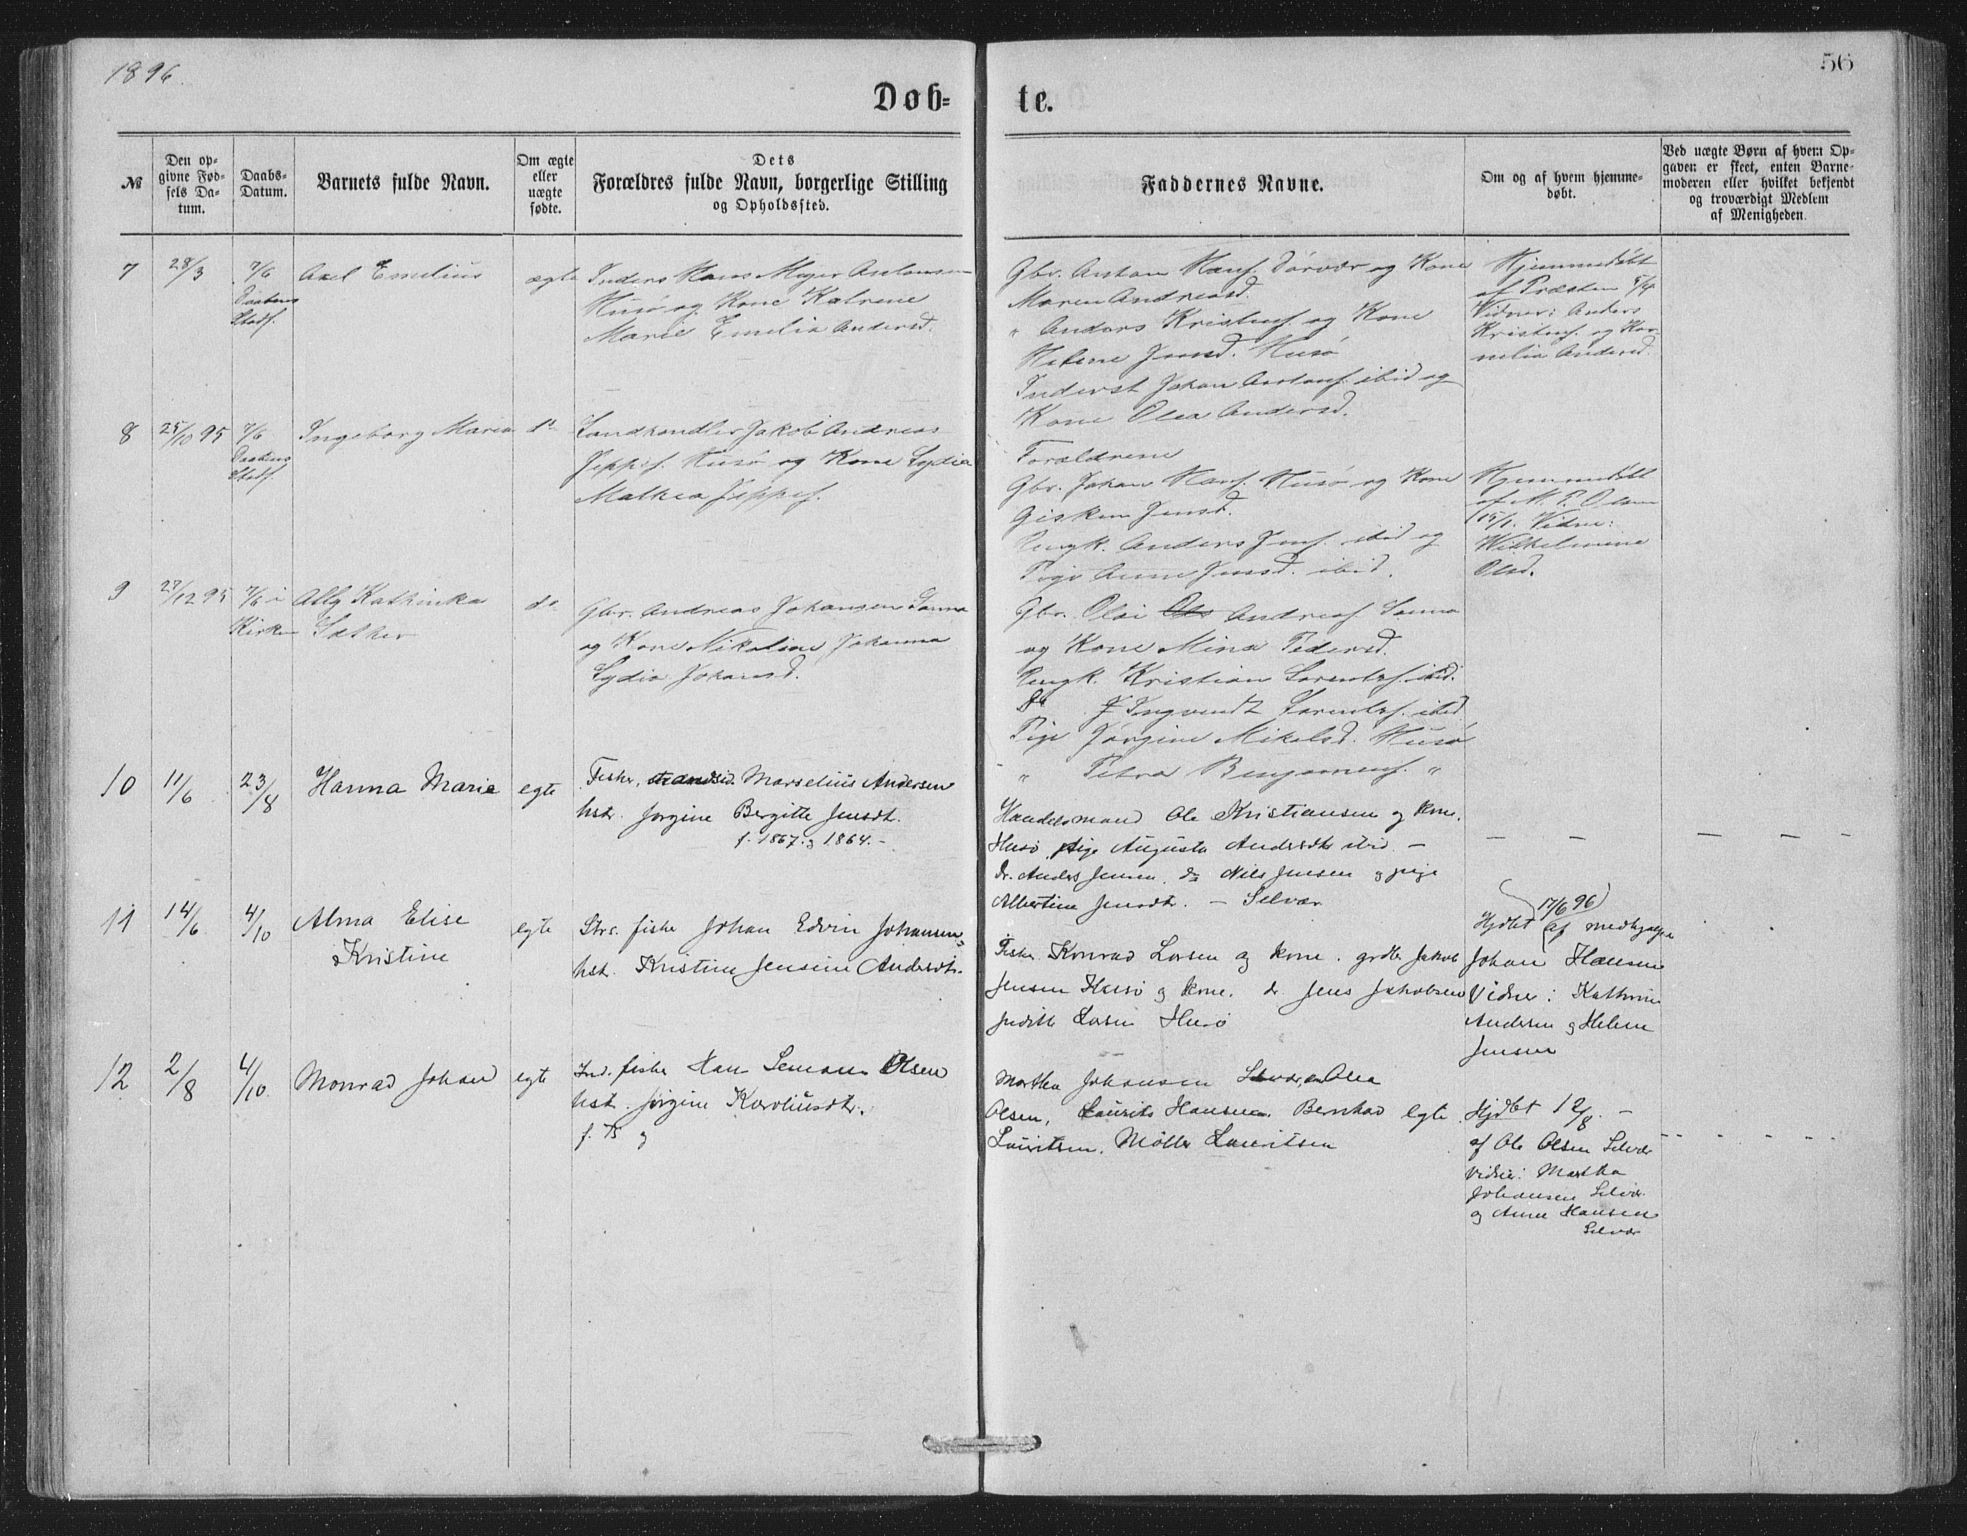 1896.
56
Døb=
te.
№
Den op-
givne Fød-
sels Da-
tum.
Daabs-
Datum.
Barnets fulde Navn.
Om ægte
eller
uægte
fødte.
Dets
Forældres fulde Navn, borgerlige Stilling
og Opholdssted.
Faddernes Navne.
Om og af hvem hjemme-
døbt.
Ved uægte Børn af hvem Op-
gaven er skeet, enten Barne-
moderen eller hvilket bekjendt
og troværdigt Medlem
af Menigheden.
7
28/3
7/6
Daabens
Stadf.
Axel Emelius
ægte
Inders Hans Meyer Antonsen
Husø og Kone Katrene
Marie Emelia Andersd.
Gbr. Anton Hansf. Dørvær og Kone
Maren Andreasd.
" Anders Kristenf. og Kone
Helene Jensd. Husø
Inderst Johan Antonf. ibid og
Kone Olea Andersd.
Hjemmedøbt
af Præsten 5/4
Vidner: Anders
Kristenf. og Kor-
nelia Andersd.
8
25/10 95
7/6
Daabens
Stadf.
Ingeborg Maria
do
Landhandler Jakob Andreas
Jeppef. Husø og Kone Lydia
Mathea Jeppef.
Forældrene
Gbr. Johan Hansf. Husø og Kone
Gisken Jensd.
Ungk. Anders Jensf. ibid og
Pige Anne Jensd. ibid.
Hjemmedøbt
af N. P. Olsen
15/1. Vidne:
Wilhelmine
Olsd.
9
27/12 95
7/6 i
Kirken
Ally Kathinka
Gbr. Andreas Johansen Sanna
do
og Kone Nikoline Johanna
Lydia Johansd.
Gbr. Olai Andreasf. Sanna
og Kone Mina Pedersd.
Ungk. Kristian Lorentsf. ibid.
Do Ingvardt Lorentsf. ibid
Pige Jørgine Mikelsd. Husø
" Petra Benjaminsf. "
10
11/6
23/8
Hanna Marie
egte
Fisker, strandsid. Marselius Andersen
hst. Jørgine Bergitte Jensdt.
f. 1867. og 1864. -
Handelsmand Ole Kristiansen og kone.
Husø, pige Augusta Andersdtr ibid -
Dr. Anders Jensen, do Nils Jensen og pige
Albertine Jensdtr. - Selvær
11
14/6
4/10
Alma Elise
Kristine
egte
Strs. fisker Johan Edvin Johansen,
hst. Kristine Jensine Andersdtr.
Fisker Konrad Larsen og kone. grdbr. Jakob
Jensen Husø og kone. dr. Jens Jakobsen
Judith Larsen Husø
17/6 96
Hjdbt af medhjelper
Johan Hansen
Vidner: Kathrine
Andersen og Helene
Jensen
12
2/8
4/10
Monrad Johan
egte
Ind. fisker Hans Semon Olsen
hst. Jørgine Karoliusdtr.
f. 75 og
Martha Johansen Selvær, Olea
Olsen, Laurits Hansen. Bernhard
Lauritsen. Møller Lauritsen
egte
Hjdbt 12/8. -
af Ole Olsen Selvær
Vidner: Martha
Johansen Selvær.
og Anne Hansen
Selvær